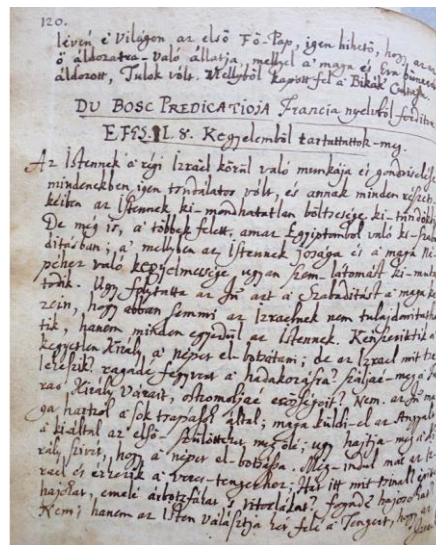 120.
lévén é Világon az elsö Fö-Pap, igen hihetö, hogy az
ö áldozatra-való állatja, mellyel a maga és Éva bünéért
áldozott, Tulok vólt. Mellyböl kapott fel a Bikák
DU BOSC PREDICATIOJA Francia nyelvböl forditva
EFES. II. 8. Kegyelemböl tartattatok-meg.
Az Istennek a régi Izráel körül való munkája és gondviselése
mindenekben igen tsudálatos vólt, és annak minden részet-
kéiben az Istennek ki-mondhatatlan böltsesége ki-tündökl
De még is, a' többek felett, amaz Egyiptomból való ki-szaba-
ditásban; a' mellyben az Istennek jósága és a maga né-
péhez való kegyelmessége ugyan szem-látomást ki-muta-
tódik. Ugy folytatta az Ur azt a Szabaditást a maga ke-
zein, hogy abban semmi az Izraelnek nem tulajdonittatha-
tik, hanem minden egyedül az Istennek. Kénszeríttik a
kegyetlen Király a népet el-botsátani; de az Izrael mit tse-
lekszik? ragadé fegyvert a hadakozásra? szálláé-meg a Fa-
raó Király Várait, ostromoljaé erösségeit? Nem. az Ur ma-
ga hartzol a sok trapák által; maga küldi-el az Angyalt
a kiáltal az elsö-szülötteket meg-öle; ugy hajtja-meg a Ki-
rály szivét, hogy a népet el-botsássa. Meg-indul már az Iz-
rael és érkezik a veres-tengerhez; Hát itt mit tsinál? épit
hajókat, emelé árbotzfákat és vitorlákat? fogadé hajósokat?
Nem; hanem az Isten választja két felé a Tengert, hogy az